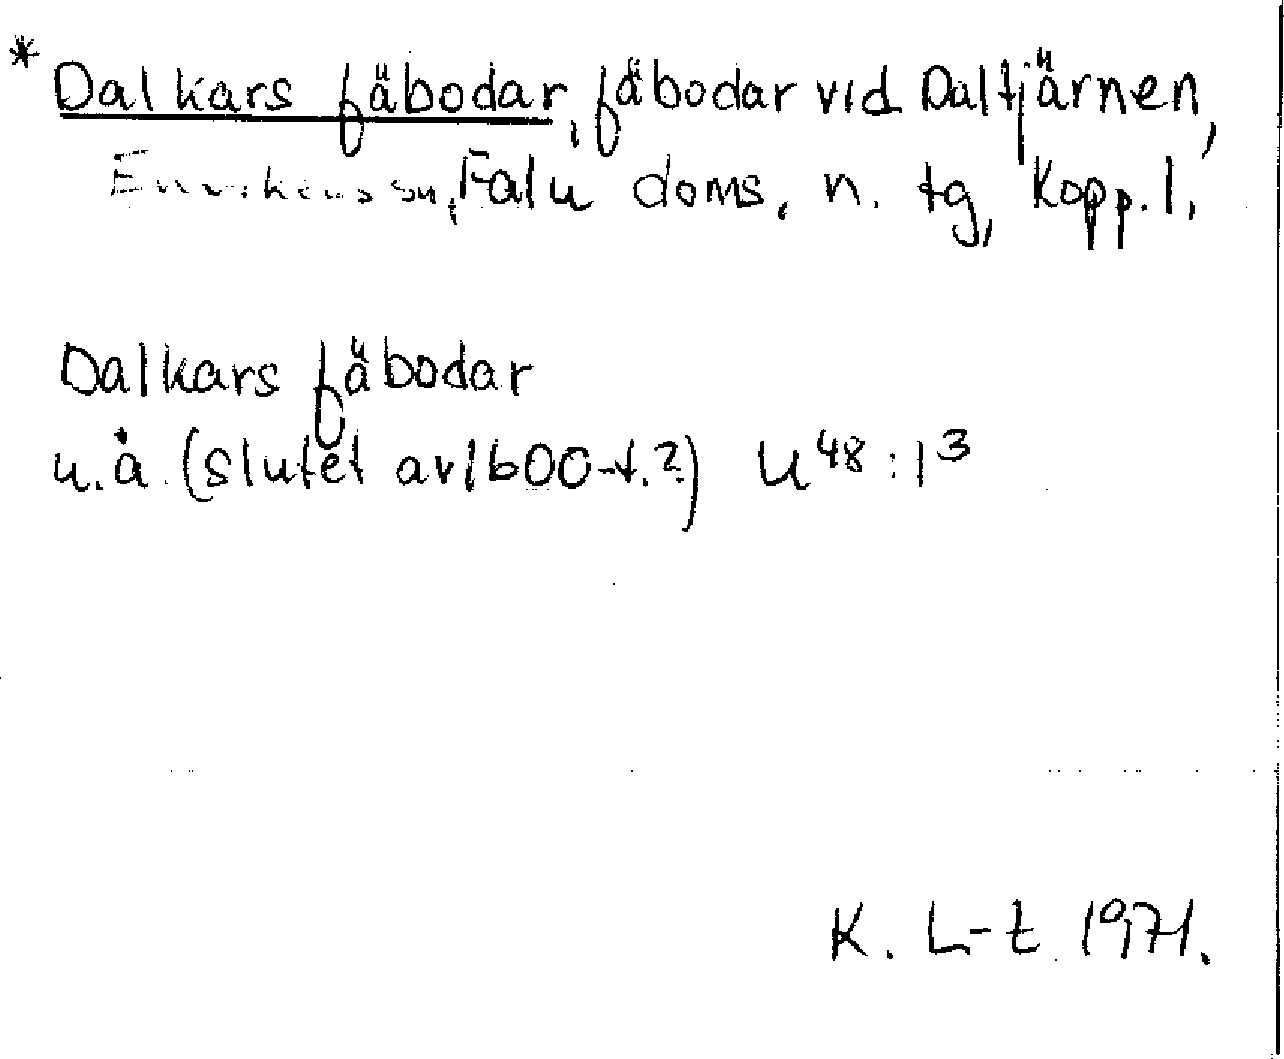 * Dalkars fäbodar, fäbodar vid Daltjärnen,
Envikens sn, Falu doms. n. tg, Kopp. l.
Dalkars fäbodar
u.å. (slutet av 1600-t.?) U⁴⁸:1³
K. L-t 1971.